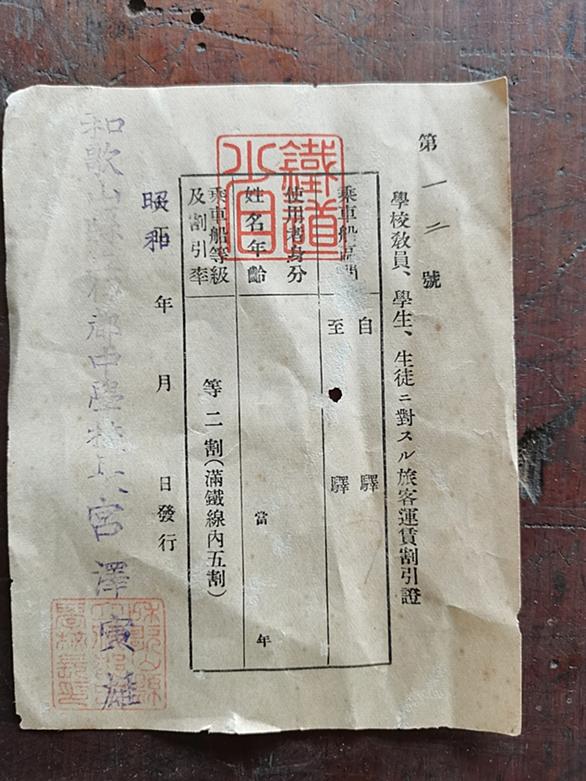 第一二號
學校敎員、學生、生徒ニ對スル旅客運賃割引證
鐵道
乘車船區間
自 驛
至 驛
使用者身分
姓名年齡
當 年
乘車船等級
及割引率
等二割(滿鐵線內五割)
昭和
年 月 日發行
和歌山縣
郡中
宮澤寅雄